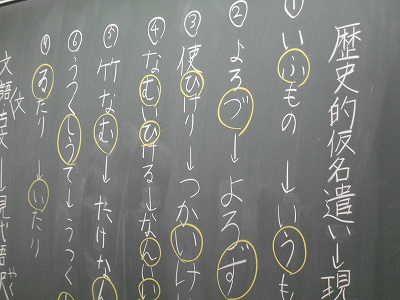 歴史的仮名遣い→現
①いふもの → いうも
②よろづ→よろず
③使ひけり→つかいけ
④なむひける→なんい
⑤竹なむ→たけなん
⑥うつくしうて→うつく
⑧ゐたり → いたり
文語文→現代語訳